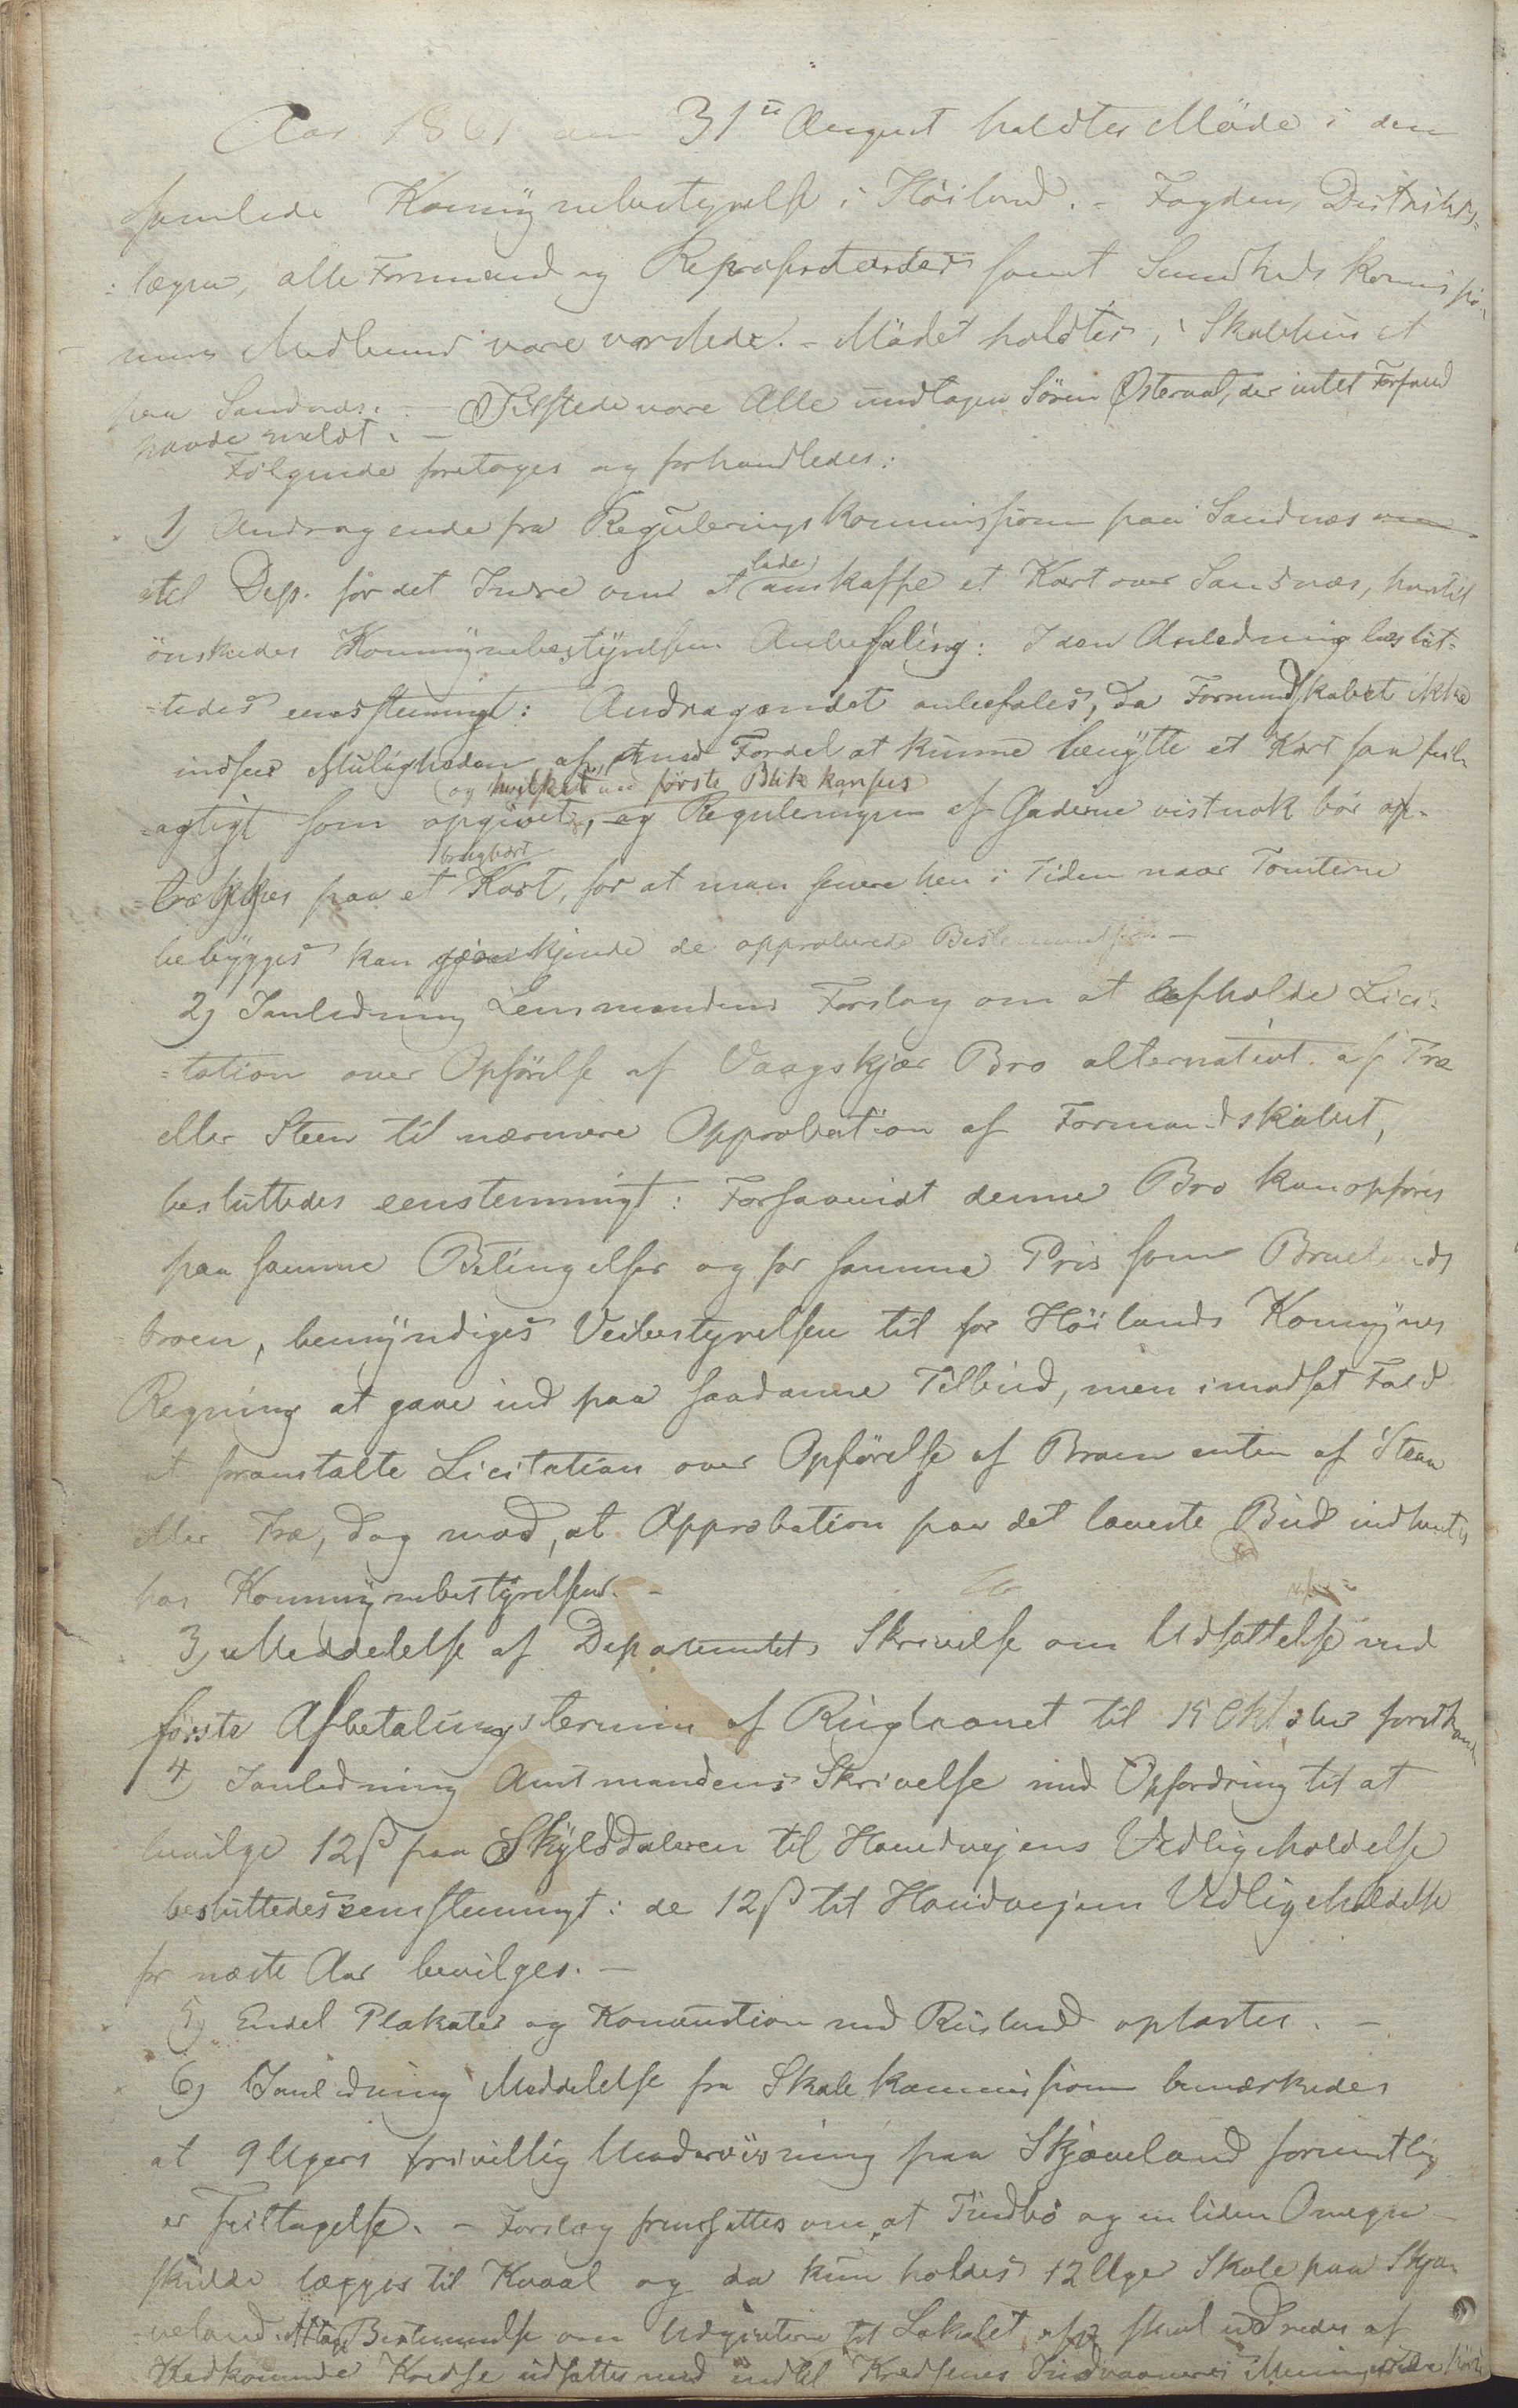 Aar 1861 den 31te August holdtes Møde i den
samlede Kommünebestyrelse i Höiland. - Fogden, Distrikts=
=lægen, alle Formænd og Repræsentanter samt Sundhedskommissio-
nens Medlemmer vare varslede. - Mödet holdtes i Skolehuset
paa Sandnæs. - Tilstede vare Alle undtagen Sören Østeraat, der intet Forfald
havde meldt. -
Følgende foretoges og forhandledes:
1) Andragende fra Reguleringskommissionen paa Sandnæs
til Dep. for det Indre om at lade anskaffe et Kart over Sandnæs, hvortil
önskedes Kommünebestÿrelsens Anbefaling: I den Anledning beslüt=
=tedes eenstemmigt: Andragendet anbefales, da Formandskabet ikke
indseer Muligheden af, med Fordel at kunne benÿtte et Kart saa feil=
=agtigt som opgivet, og hvilket ved förste Blik kan sees og Reguleringen af Gaderne vistnok bör op-
=trækkes paa et brugbart Kart, for at man senere hen i Tiden naar Tomterne
bebÿgges kan gjenkjende de approberede Bestemmelser. -
2) I anledning Lensmandens Forslag om at afholde Lici=
=tation over Opförelse af Vaagskjær Bro alternativt af Træ
eller Steen til nærmere Approbation af Formandskabet,
besluttedes eenstemmigt: Forsaavidt denne Bro kan opföres
paa samme Betingelser og for samme Pris som Bruelands
broen, bemÿndiges Veibestyrelsen til for Höilands Kommÿnes
Regning at gaae ind paa saadanne Tilbüd, men i modsat Fald
at foranstalte Licitation over Opförelse af Broen enten af Steen
eller Træ, dog mod, at Approbation paa det laveste Büd indhentes
hos Kommünebestÿrelsen. -
3) Meddelelse af Departementets Skrivelse om Udsættelse med
förste Afbetalingstermin af Rüglaanet til 15 Oktober
4) I anledning Amtmandens Skrivelse med Opfordring til at
bevilge 12 ß paa Skÿlddaleren til Hovedvejens Vedligeholdelse
besluttedes eenstemmigt: de 12 ß til Hovedvejens Vedligeholdelse
for næste Aar bevilges. -
5) Endel Plakater og Konvention med Rusland oplæstes. -
6) I anledning Meddelelse fra Skolekommissionen bemærkedes
at 9 Ugers frivillig Undervisning paa Skjæveland formentlig
er Feiltagelse. - Forslag fremsattes om at Tindbö og en liden Omegn
skülde lægges til Kvaal og da kun holdes 12 Uger Skole paa Skjæ-
veland. Bestemmelse om Udgivterne til Lokalet skal udredes af
Vedkommende Kredse udsættes med indtil Kredsenes Indvaaneres Mening